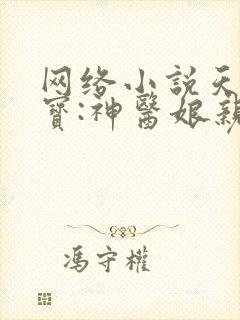 网络小説天
寶:神醫娘親
馮守權